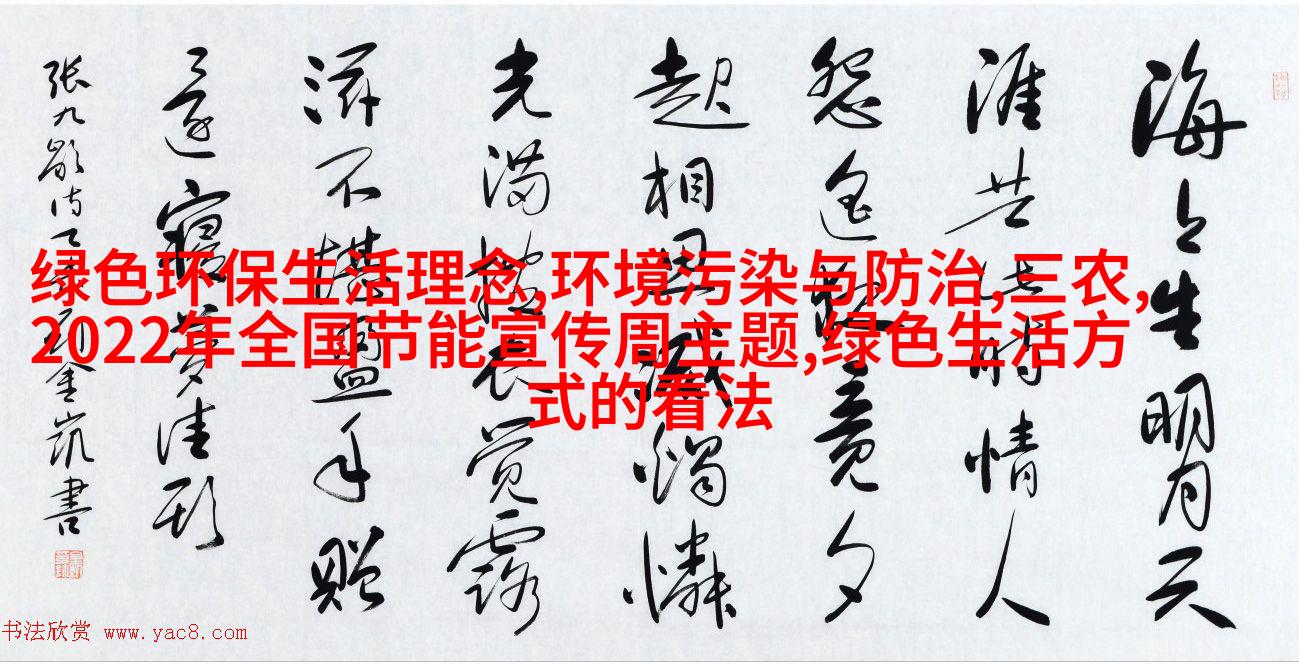 绿色环保生活理念,环境污染与防治,三农,
2022年全国节能宣传周主题,绿色生活方
式的看法
海上生明月天
涯共此時情人
怨遥夜竟夕
起相思滅燭憐
光满披衣覺露
滋不堪盈手贈
還寢夢佳期
張九齡詩 書
书法欣赏 www.yac8.com